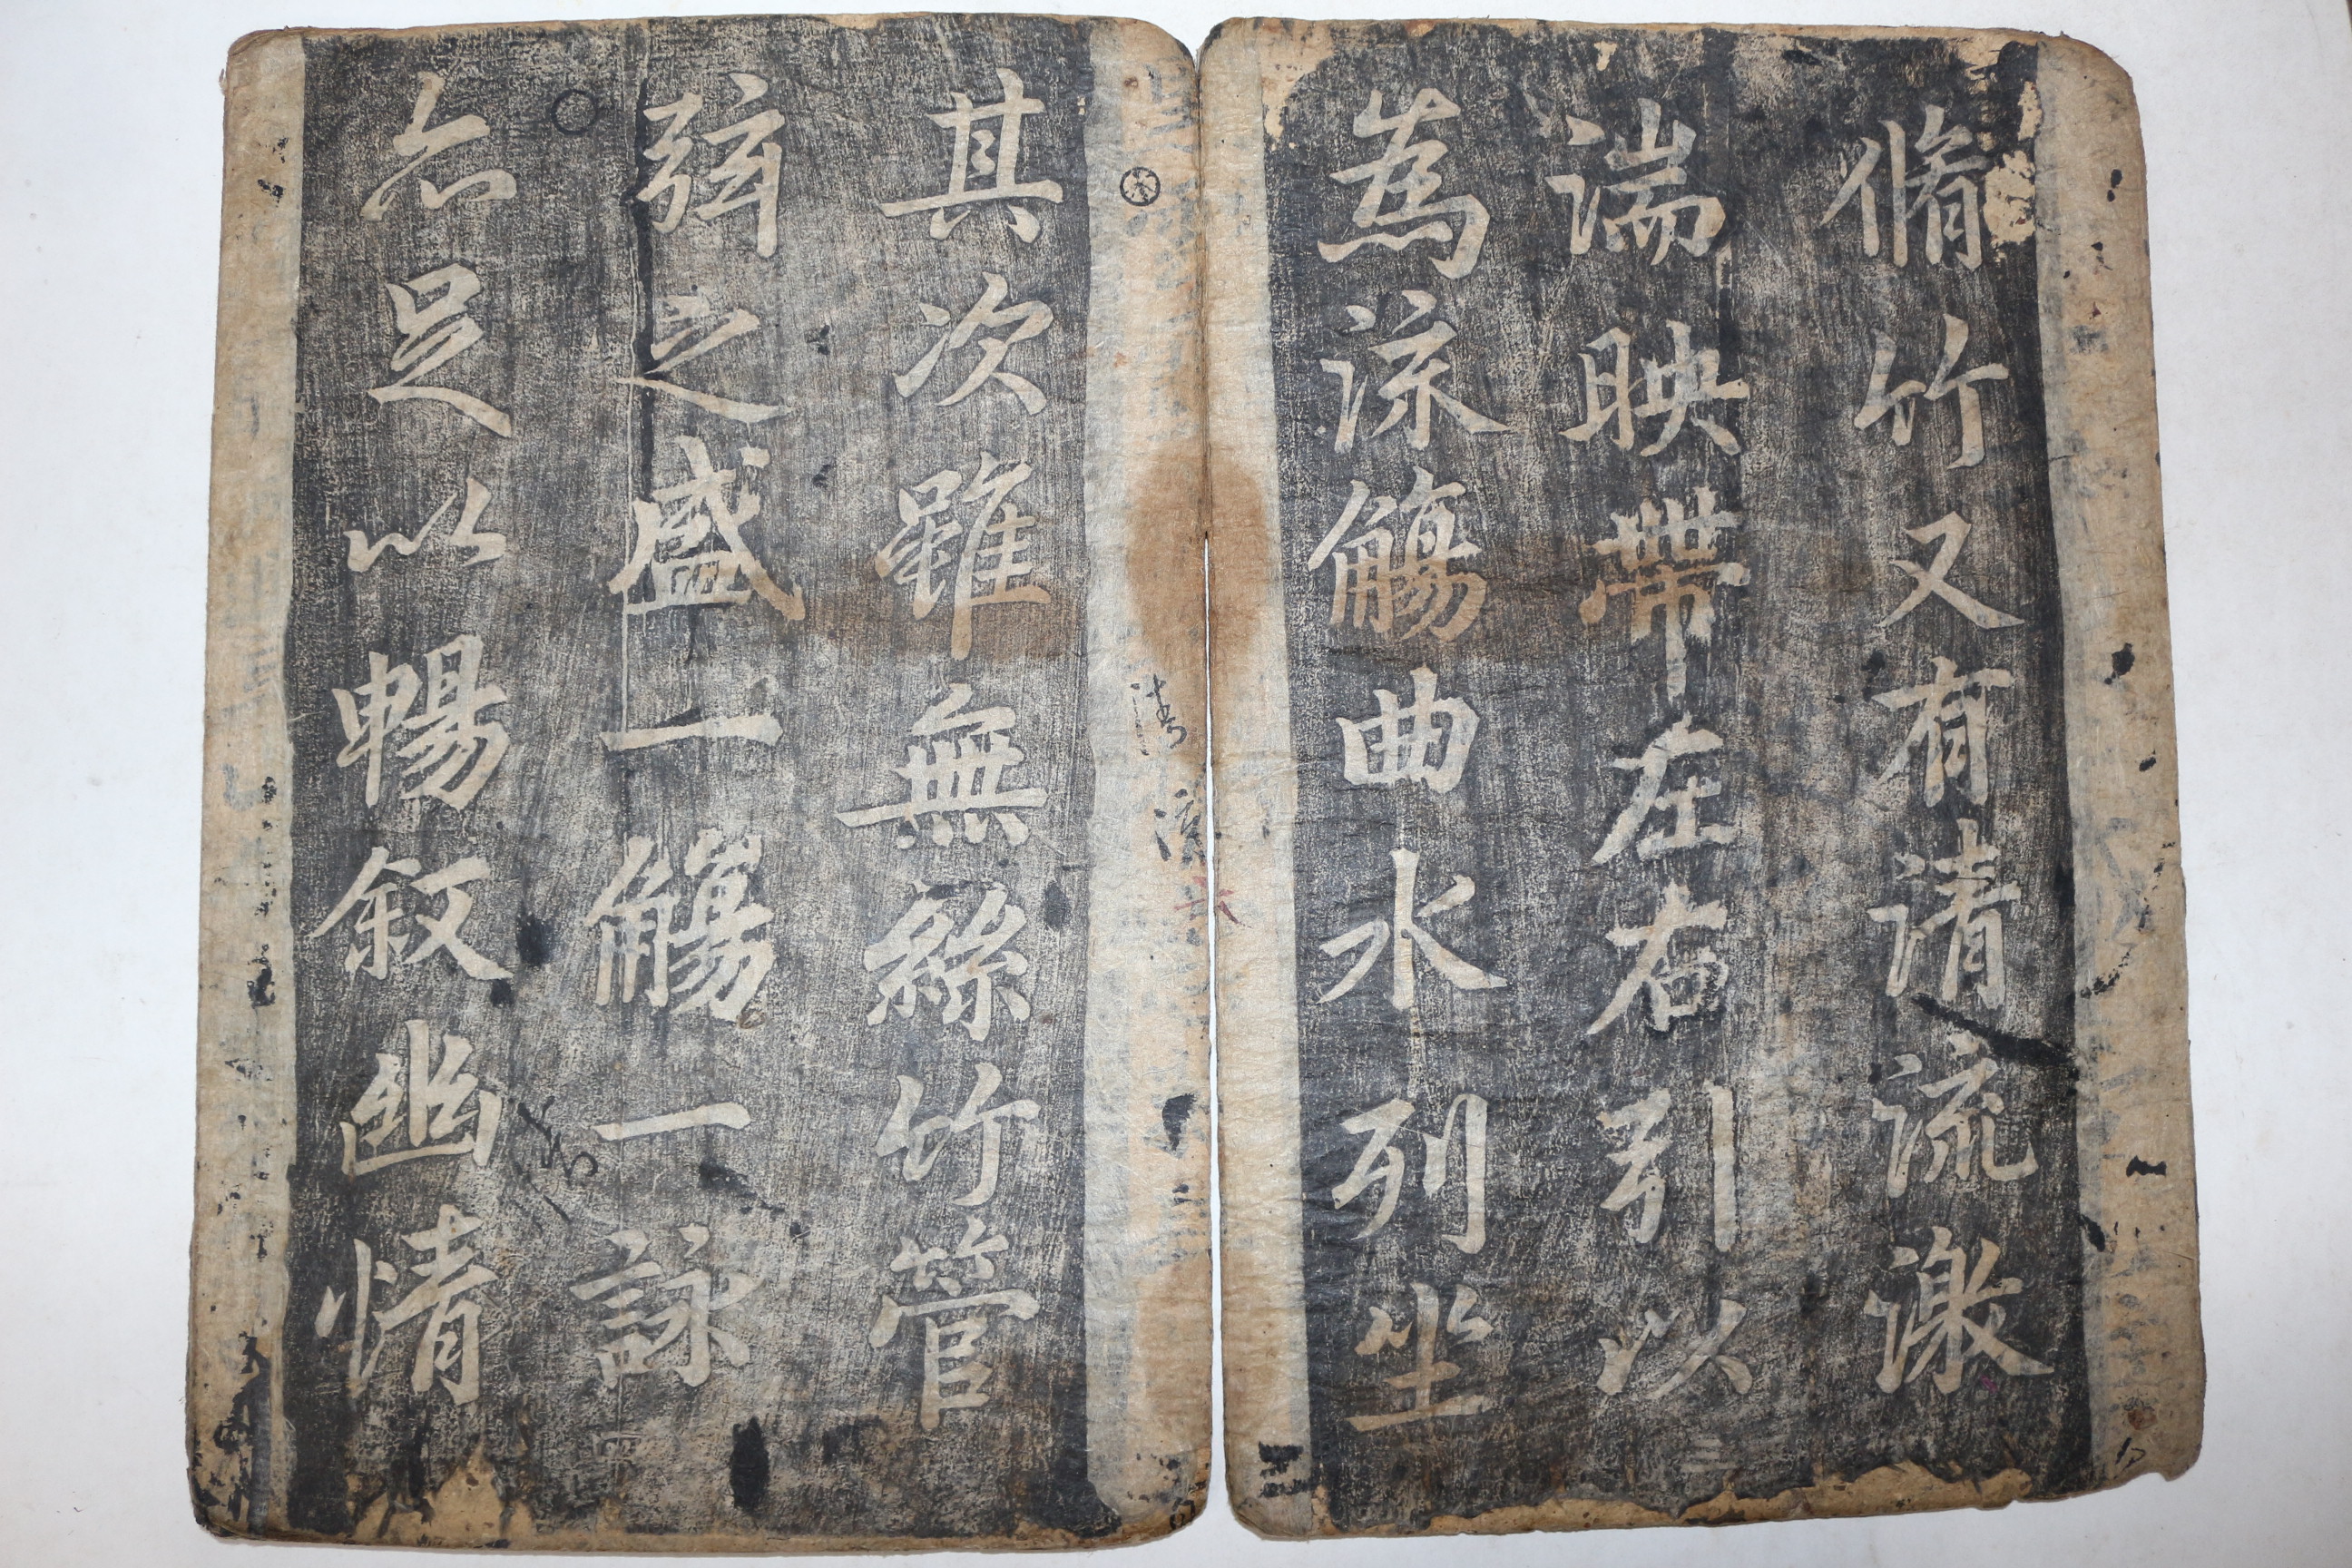 脩竹又有清流激
湍映帶左右引以
為流觴曲水列坐
其次雖無絲竹管
弦之盛一觴一詠
亦足以暢敘幽情
三
四